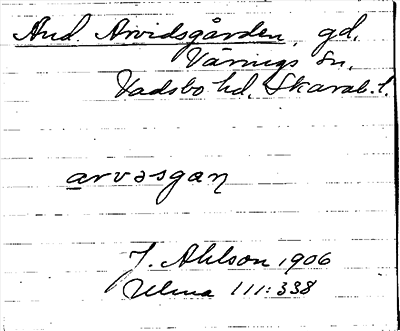 And. Arvidsgården, gd,
Värings sn,
Vadsbo hd. Skarab. l.
arvəsgaɳ
J. Ahlson 1906
Ulma 111:338